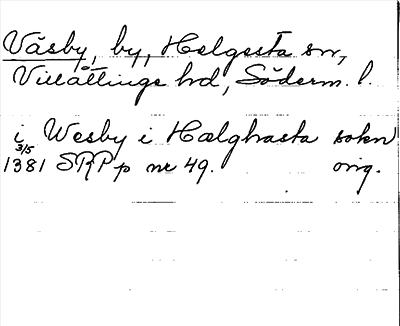 Väsby, by, Helgesta sn,
Villåttinge hd, Söderm. l.
i Wesby i Hælghasta sokn
3/5
1381 SRPp nr 49. orig.